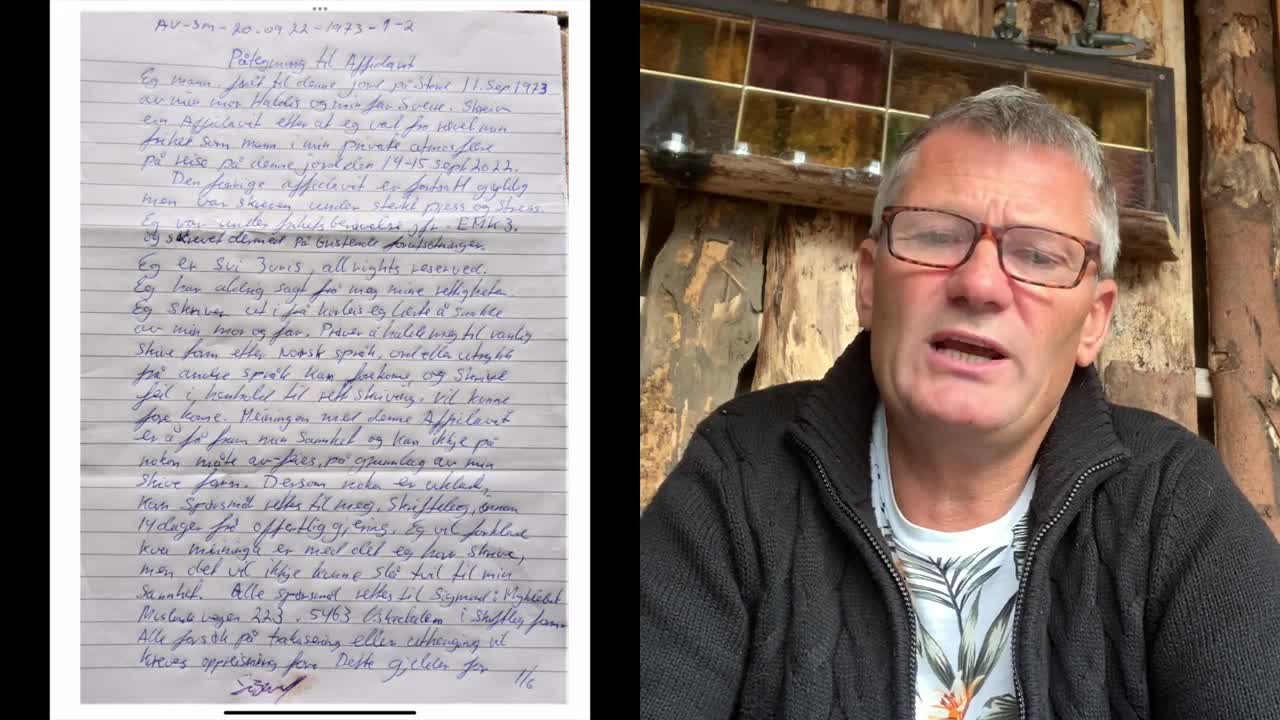 AV-SM-20.09 22-1973-1-2
Påtegning til Affidavit
Eg mann, født til denne jord på Stord 11.Sep.1973
av min mor Haldis og min far Svein. Skriver
ein Affidavit etter at eg vart frarøvel min
frihet som mann i min private atmosfære
på reise på denne jord den 14-15 sept 2022.
Den forrige affidavit er fortsatt gyldig
men var skreven under sterkt press og stress.
Eg var under frihetsberøvelse jfr. EMK 3.
og skrevet dermed på bristende forutsetninger.
Eg er Sui Juris, all rights reserved.
Eg har aldrig sagt frå meg mine rettigheter.
Eg skriver ut i frå korleis eg lærte å snakke
av min mor og far. Prøver å halde meg til vanlig
skrive form etter Norsk språk, ord eller uttrykk
frå andre språk kan forkome, og skrive
feil i henhold til rett skriving, vil kunne
fore kome. Meiningen med denne Affidavit
er å få fram min Sannhet og kan ikkje på
nokon måte av-feies, på grunnlag av min
skrive form. Dersom noko er uklart,
kan spørsmål rettes til meg, skriftleg, innan
14 dager frå offentlig gjering. Eg vil forklare
kva meininga er med det eg har skreve,
men det vil ikkje kunne slå tvil til min
Sannhet. Alle spørsmål rettes til Sigmund:
223, 5463 Uskedalen i skriftlig form
Alle forsøk på trakasering eller uthenging vil
kreves oppreisning for. Dette gjelder for
1/6